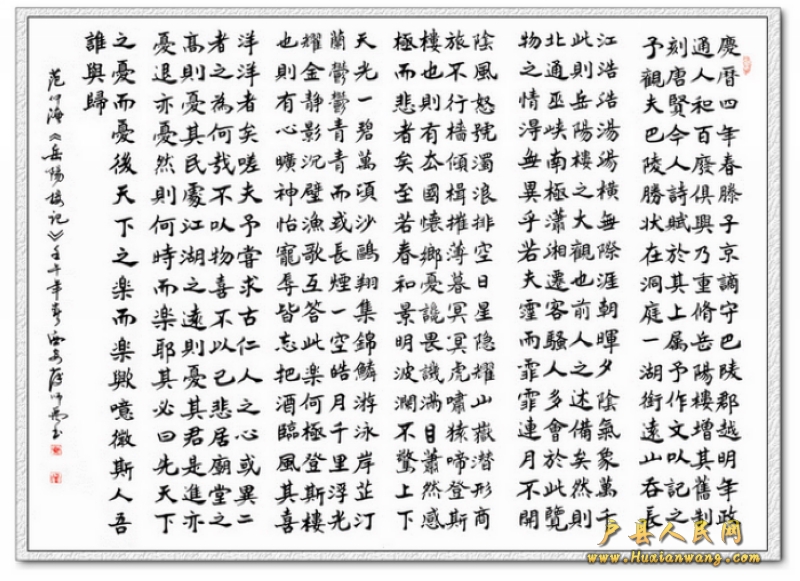 慶曆四年春滕子京謫守巴陵郡越明年政
通人和百廢俱興乃重脩岳陽樓增其舊制
刻唐賢今人詩賦於其上属予作文以記之
予觀夫巴陵勝状在洞庭一湖銜遠山吞長
江浩浩湯湯橫無際涯朝暉夕陰氣象萬千
此則岳陽樓之大觀也前人之述備矣然則
北通巫峽南極瀟湘遷客騷人多會於此覽
物之情得無異乎若夫霪雨霏霏連月不開
陰風怒號濁浪排空日星隐耀山嶽潜形商
旅不行檣傾楫摧薄暮冥冥虎嘯猿啼登斯
樓也則有去國懷鄉憂讒畏譏满目蕭然感
極而悲者矣至若春和景明波瀾不驚上下
天光一碧萬頃沙鷗翔集錦鱗游泳岸芷汀
蘭鬱鬱青青而或長煙一空皓月千里浮光
耀金静影沉璧漁歌互答此楽何極登斯樓
也則有心曠神怡寵辱皆忘把酒臨風其喜
洋洋者矣嗟夫予嘗求古仁人之心或異二
者之為何哉不以物喜不以己悲居廟堂之
高則憂其民處江湖之遠則憂其君是進亦
憂退亦憂然則何時而楽耶其必曰先天下
之憂而憂後天下之楽而楽歟噫微斯人吾
誰與歸
范仲淹《岳陽楼记》壬午年
户县人民网
www.Huxianwang.com